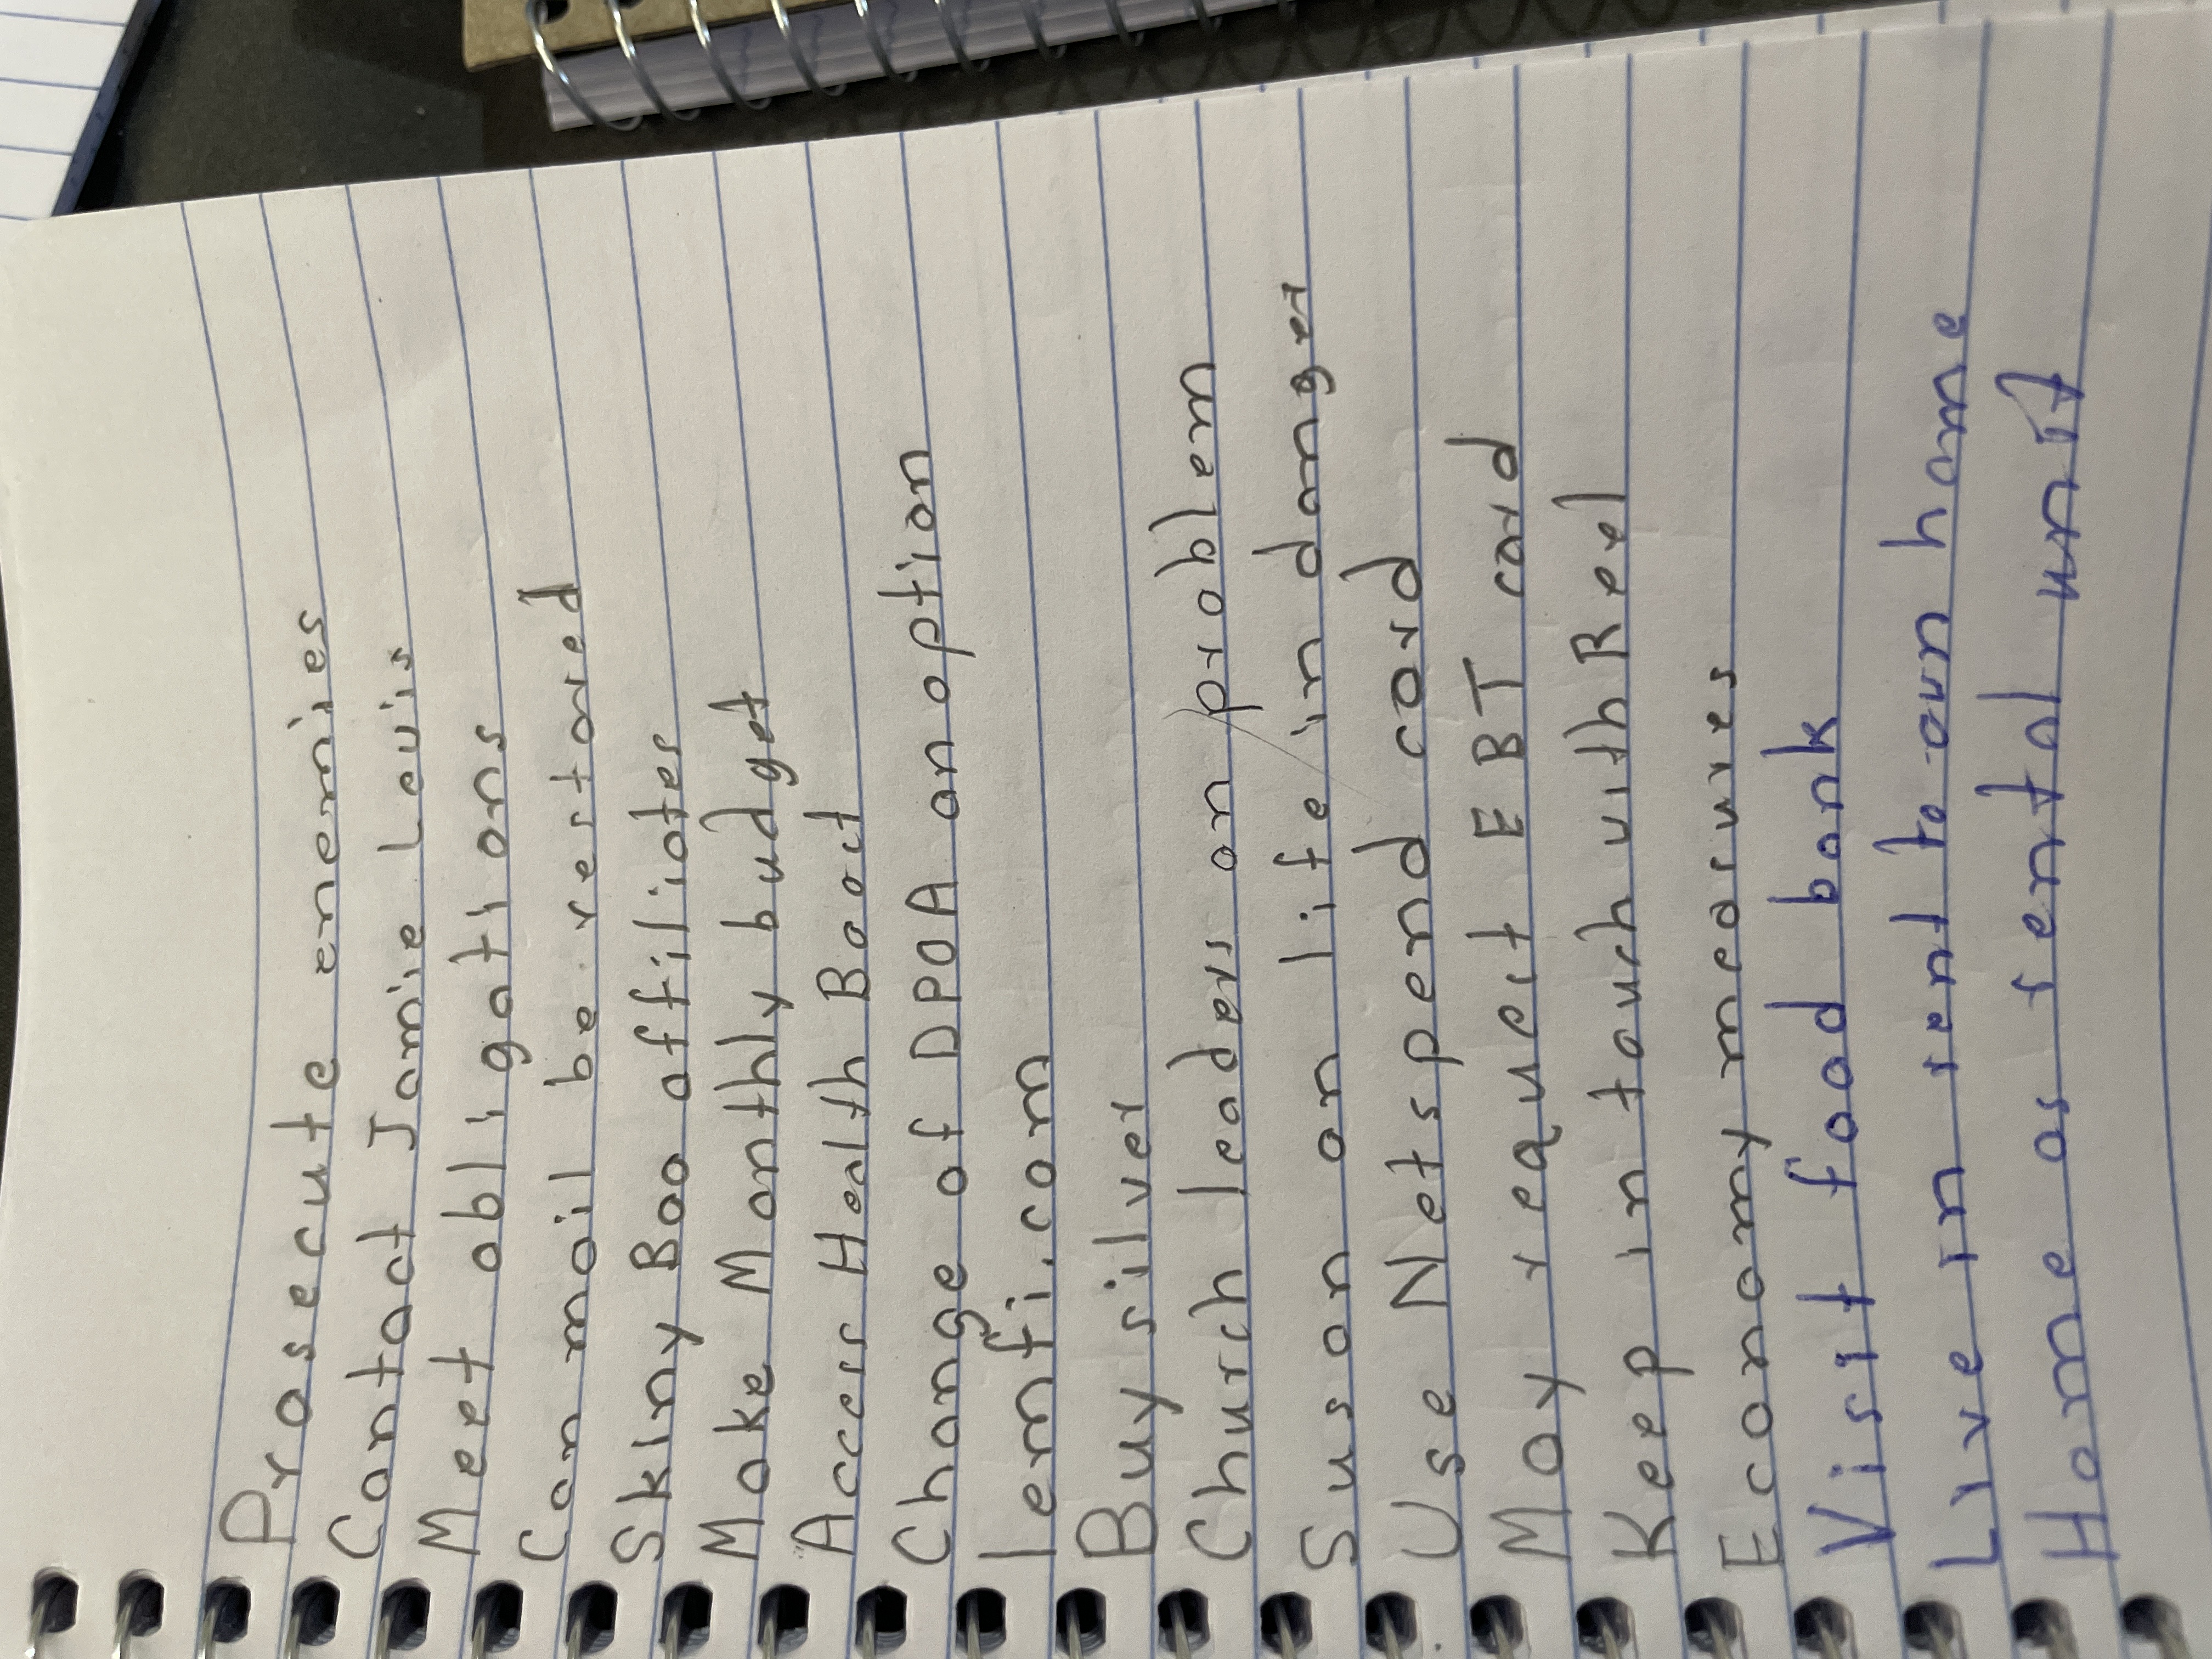 Prosecute enemies
Contact Jamie Levis
Meet obligations
Can mail be restored
Skiny Boo affiliates
Make Monthly budget
Access Health Boost
Change of DPOA an option
lemfi.com
Buy silver
Church leaders an problem
Susan on life in danger
Use Netspend card
May request EBT card
Keep in touch with Rel
Economy measures
Visit food bank
Live in tents of an home
Home as a sental